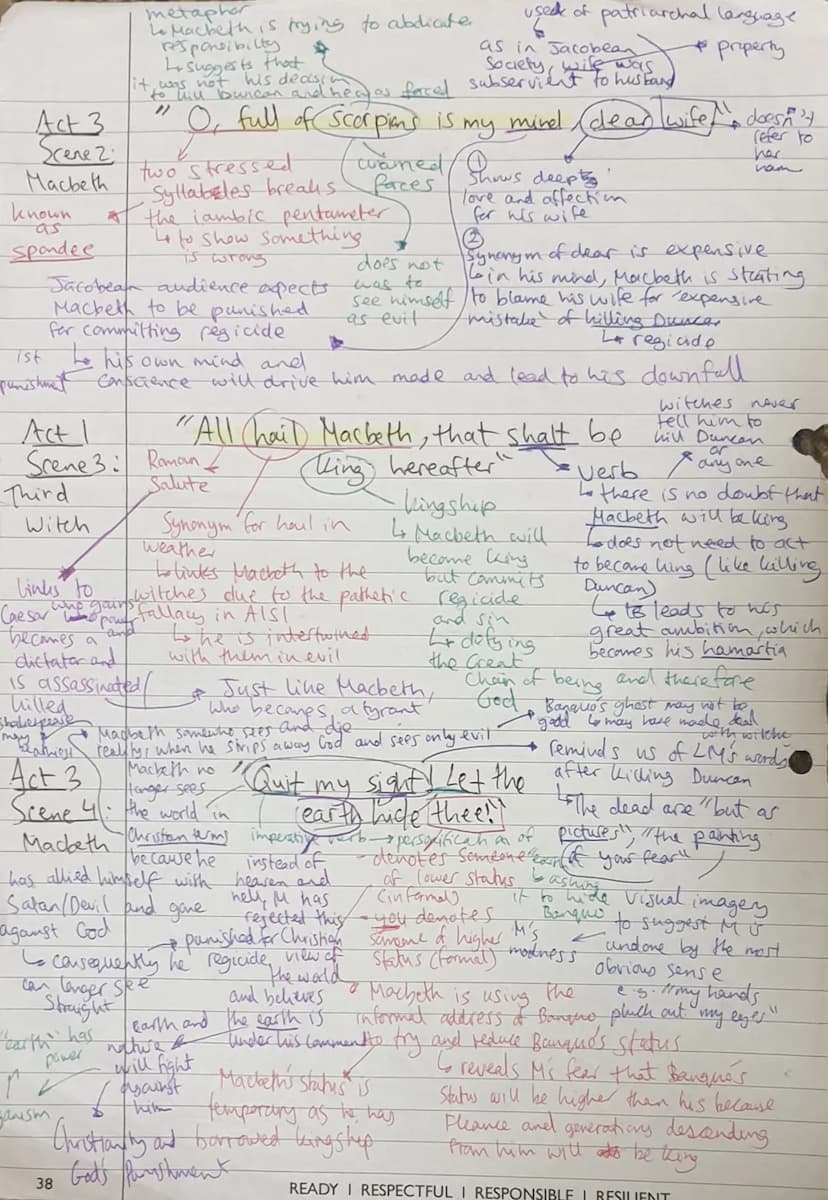 metaphor
↳ Macbeth is trying to abdicate
responsibility
↳ suggests that
it was not his decision
to kill Duncan and he was forced
used of patriarchal language
as in Jacobean
Society, wife was
subservient to husband
property
Act 3
Scene 2:
Macbeth
"O, full of scorpions is my mind, dear wife"
doesn't
refer to
her
nam
two stressed
syllables breaks
the iambic pentameter
↳ to show something
is wrong
known
as
spondee
faces
does not
was to
see himself
as evil
①
Shows deep
love and affection
for his wife
②
Synonym of dear is expensive
↳ in his mind, Macbeth is starting
to blame his wife for "expensive
mistake" of killing Duncan
↳ regicide
Jacobean audience expects
Macbeth to be punished
for committing regicide
1st
punishment
↳ his own mind and
conscience will drive him made and lead to his downfall
Act 1
Scene 3:
Third
Witch
"All hail Macbeth, that shalt be
king hereafter"
witches never
tell him to
kill Duncan
or
anyone
Roman
Salute
Synonym for haul in
weather
↳ links Macbeth to the
witches due to the pathetic
fallacy in A1S1
↳ he is intertwined
with them in evil
kingship
↳ Macbeth will
become king
but commits
regicide
and sin
↳ defying
the Great
Chain of being and therefore
God
verb
↳ there is no doubt that
Macbeth will be king
↳ does not need to act
to become king (like killing
Duncan)
↳ leads to his
great ambition, which
becomes his hamartia
links to
Caesar who gains
power and
becomes a
dictator and
is assassinated/
killed
Just like Macbeth,
who becomes a tyrant
Banquo's ghost may not be
good ↳ may have made deal
with witches
Shakespeare
may
Macbeth someone who sees and die
reality, when he strips away God and sees only evil
Act 3
Scene 4:
Macbeth
"Quit my sight! Let the
earth hide thee!"
reminds us of LM's words
after killing Duncan
↳ The dead are "but as
pictures", "the painting
of your fear"
Visual imagery
to suggest M is
undone by the most
obvious sense
e.g. "my hands
pluck out my eyes"
Macbeth no
longer sees
the world in
Christian terms
because he
has allied himself with
Satan/Devil and gone
against God
↳ consequently he
can longer see
straight
punished for
regicide
imperative verb
personification of
"earth"
↳ asking
it to hide
Banquo
M's
madness
instead of
heaven and
hell, M has
rejected this
Christian
view of
the world
and believes
the earth is
under his command
denotes someone
of lower status
(informal)
- you denotes
someone of higher
status (formal)
Macbeth is using the
informal address of Banquo
to try and reduce Banquo's status
↳ reveals M's fear that Banquo's
status will be higher than his because
Fleance and generations descending
from him will be king
earth and
nature
will fight
against
him
"earth" has
power
Macbeth's status is
temporary as he has
borrowed kingship
Christianity and
God's Punishment
38
READY | RESPECTFUL | RESPONSIBLE | RESILIENT